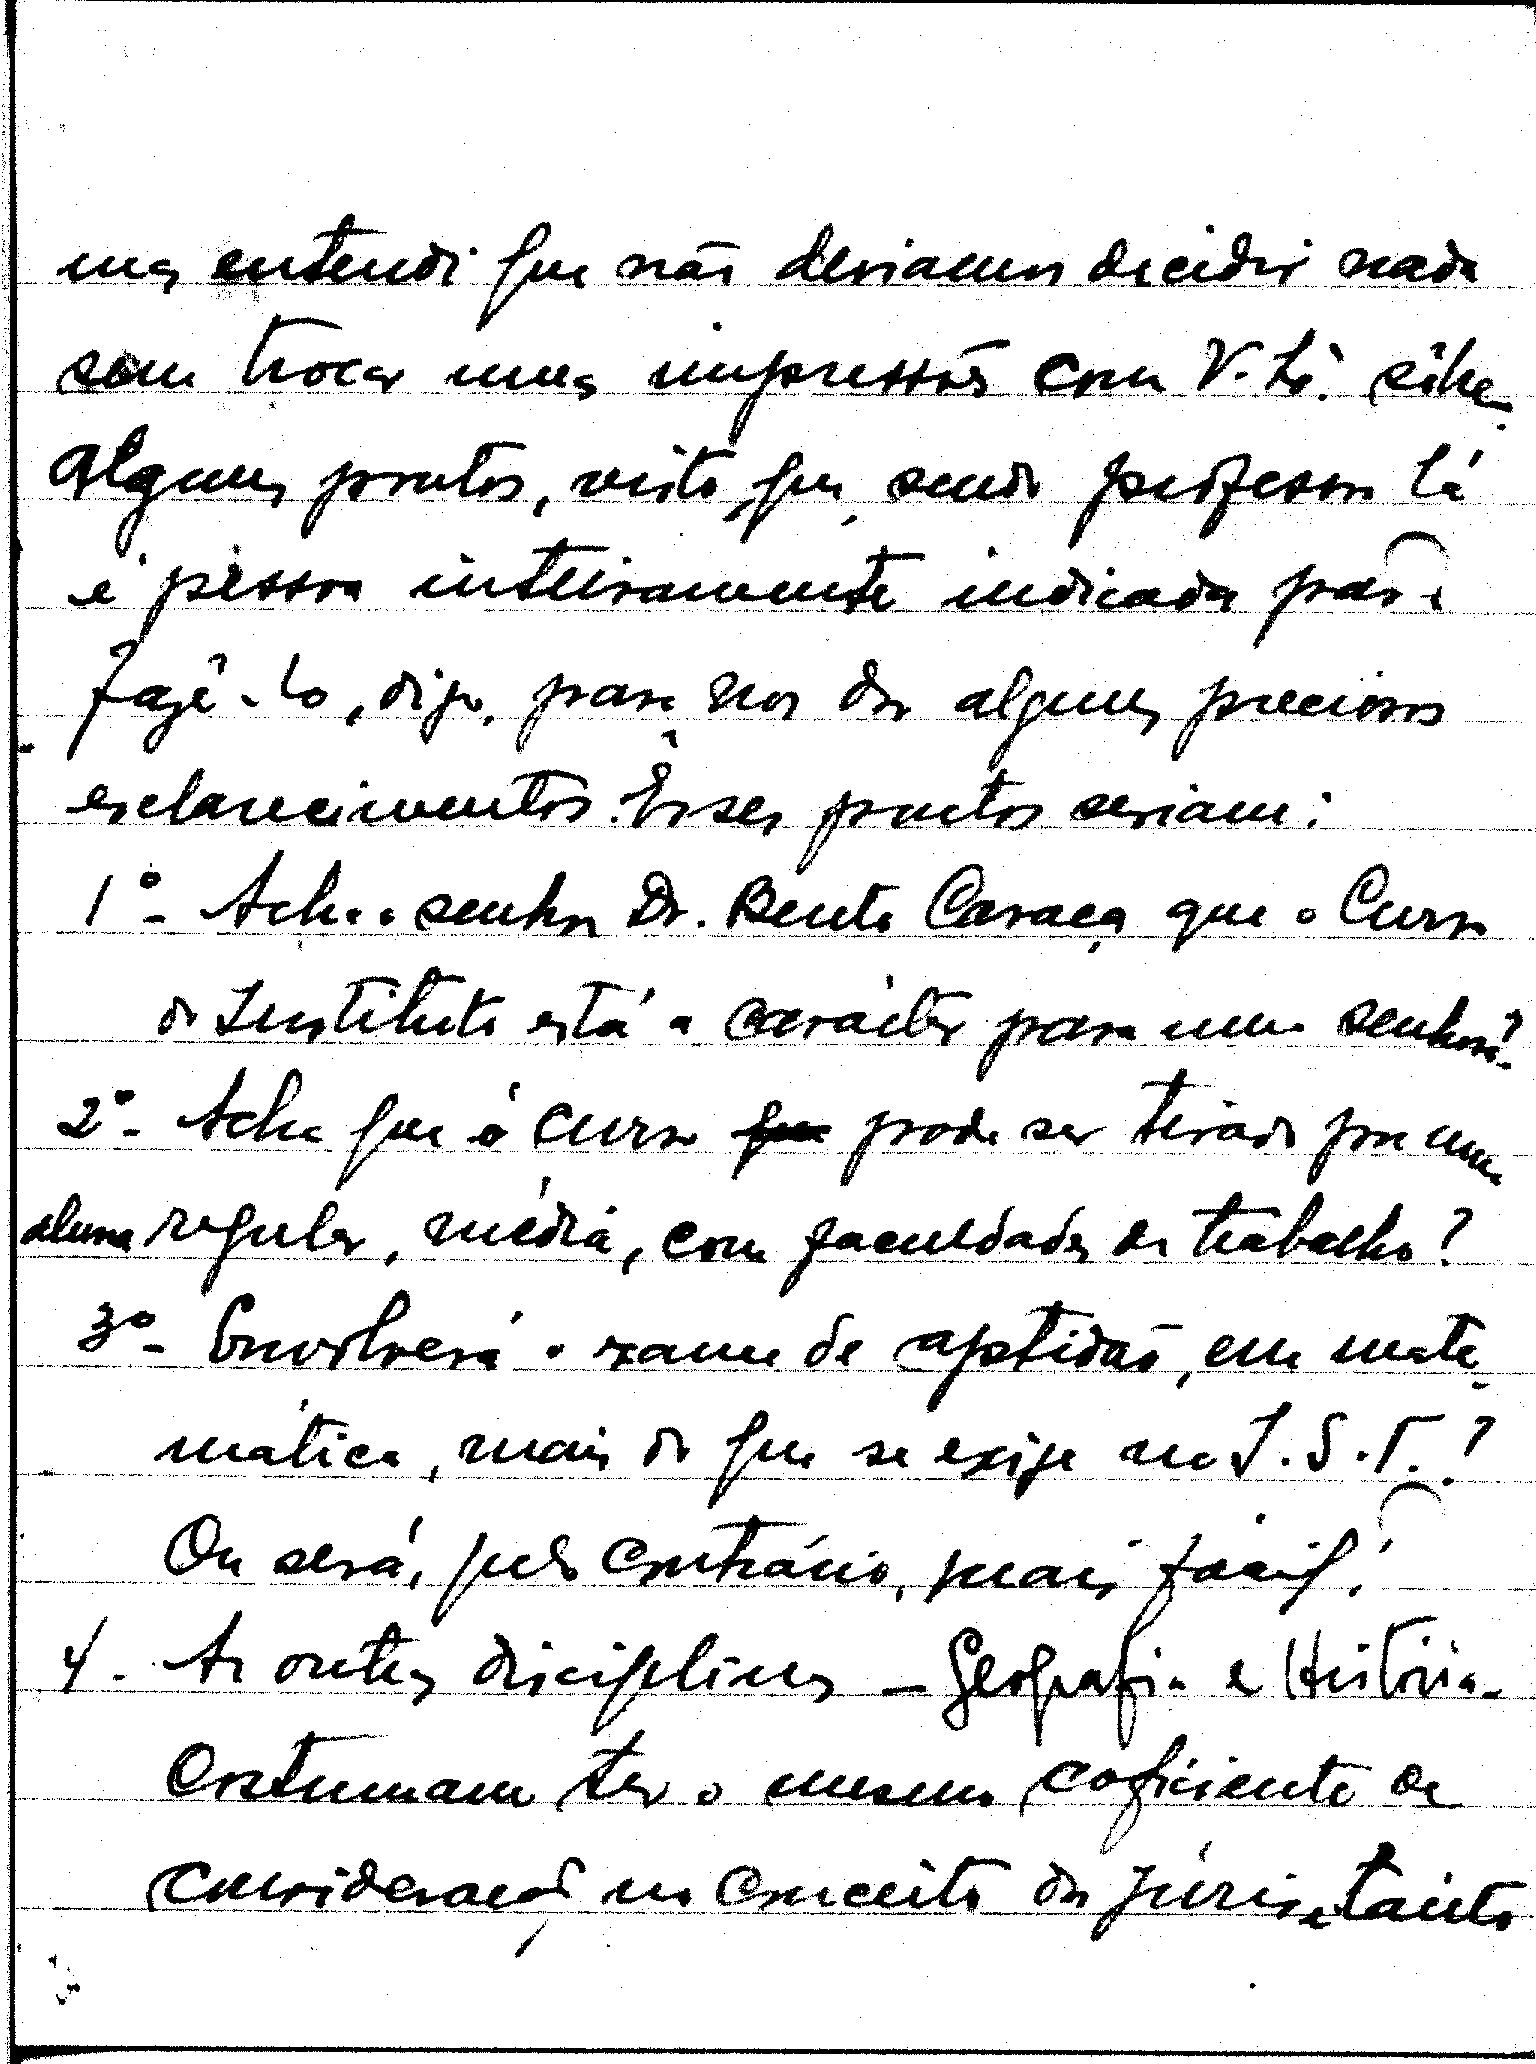 mas entendi que não deviamos decidir nada
sem trocar umas impressões com V. sôbre
alguns pontos, visto que, sendo professor lá
é pessoa inteiramente indicada para
fazê-lo, digo, para nos dar alguns preciosos
esclarecimentos. Êsses pontos seriam:
1º - Acha o senhor Dr. Bento Caraça que o Curso
do Instituto está a carácter para uma senhora?
2º - Acha que o curso pode ser tirado por uma
aluna regular, média, com faculdades de trabalho?
3º - Envolverá o exame de aptidão, em mate-
mática, mais do que se exige no I.S.T.?
Ou será, pelo contrário, mais fácil?
4 - As outras disciplinas - Geografia e História -
costumam ter o mesmo coficiente de
consideração no conceito do júri, e tanto